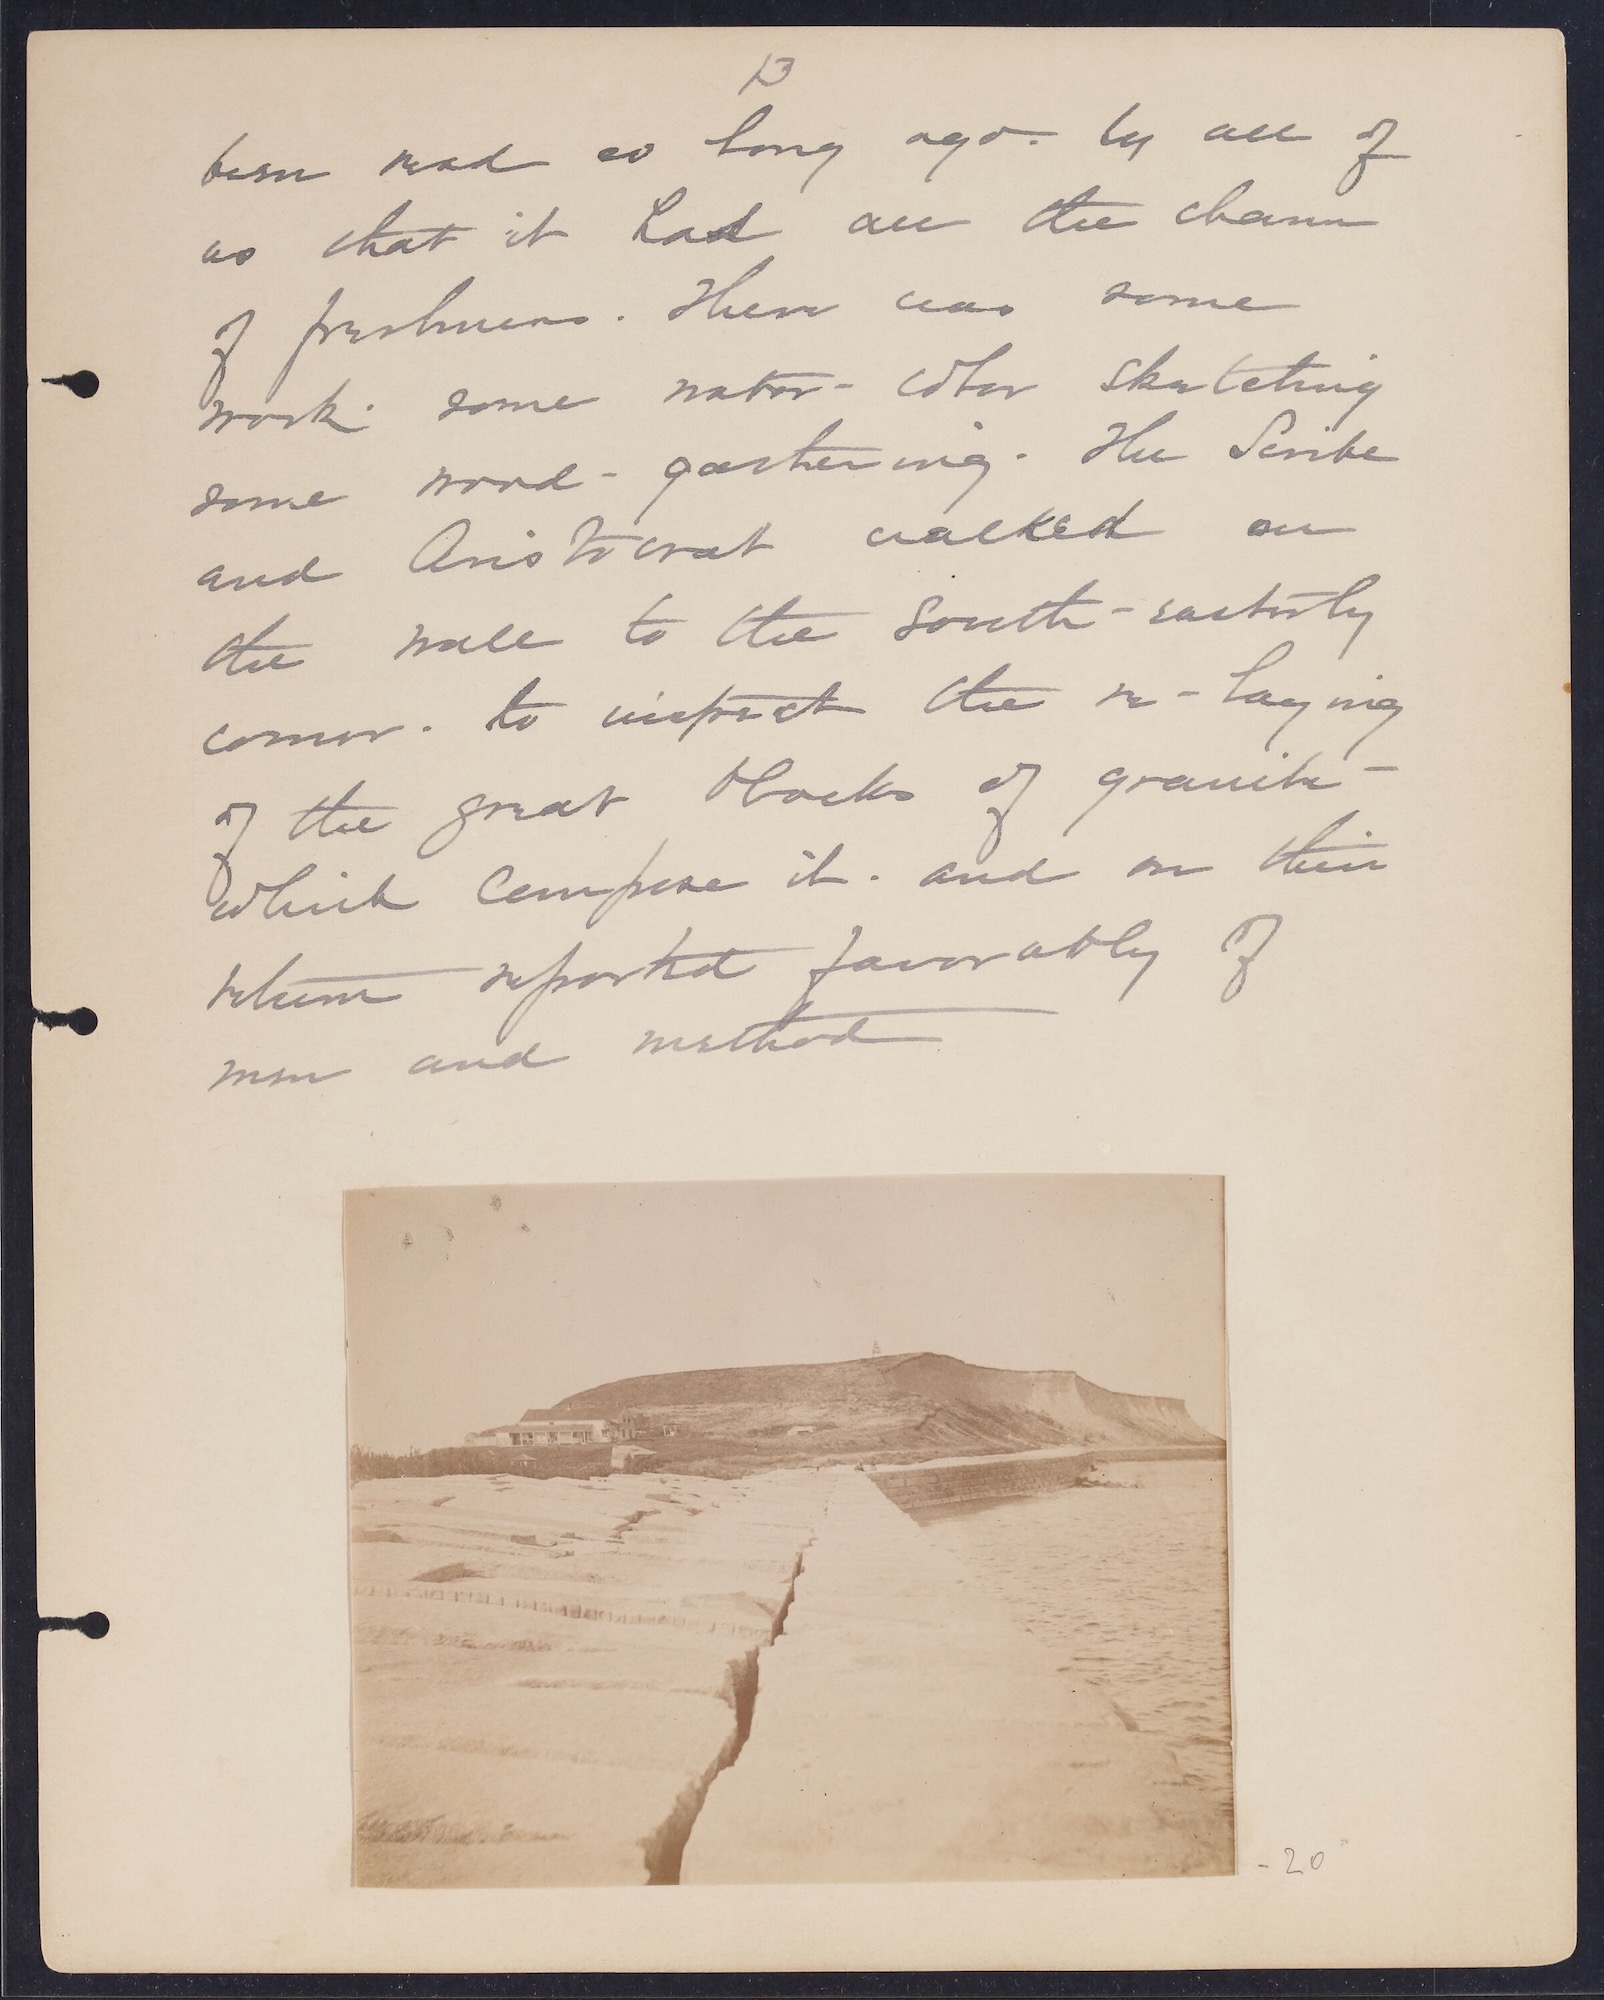 13
been read so long ago. by all of
us that it had all the charm
of freshness. There was some
work. some water-color sketching
some wood-gathering. The Scribe
and Aristocrat walked on
the wall to the South-easterly
corner. to inspect the re-laying
of the great blocks of granite-
which compose it. and on their
return reported favorably of
men and method
-20